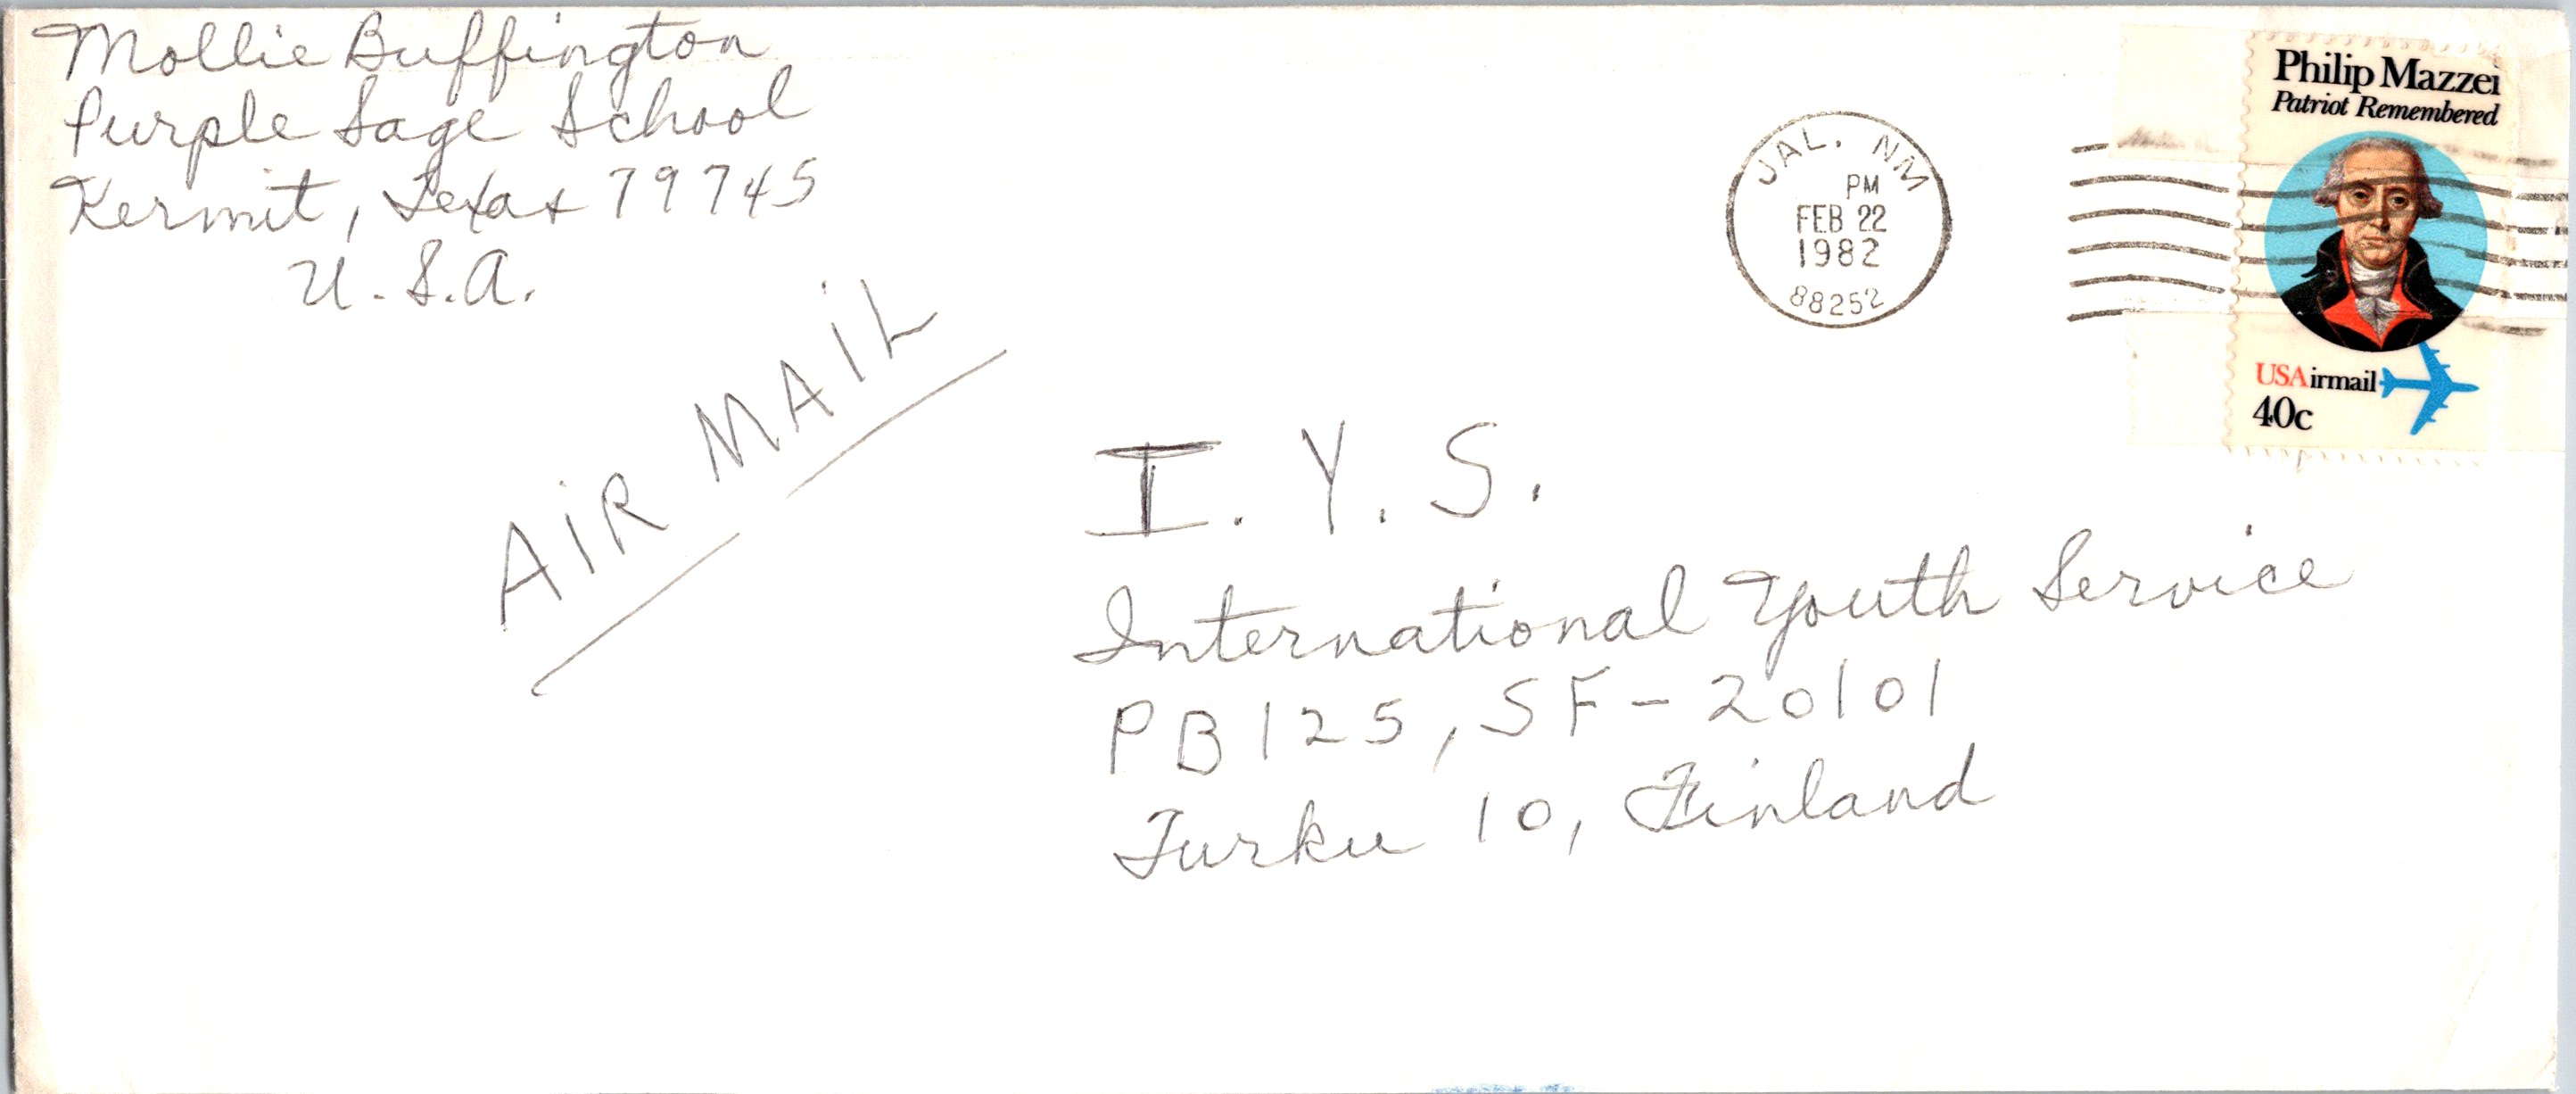 Mollie Buffington
Purple Sage School
Kermit, Texas 79745
U.S.A.
AIR MAIL
JAL. NM
PM
FEB 22
1982
88252
Philip Mazzei
Patriot Remembered
USAirmail
40c
I.Y.S.
International Youth Service
PB 125, SF-20101
Turku 10, Finland